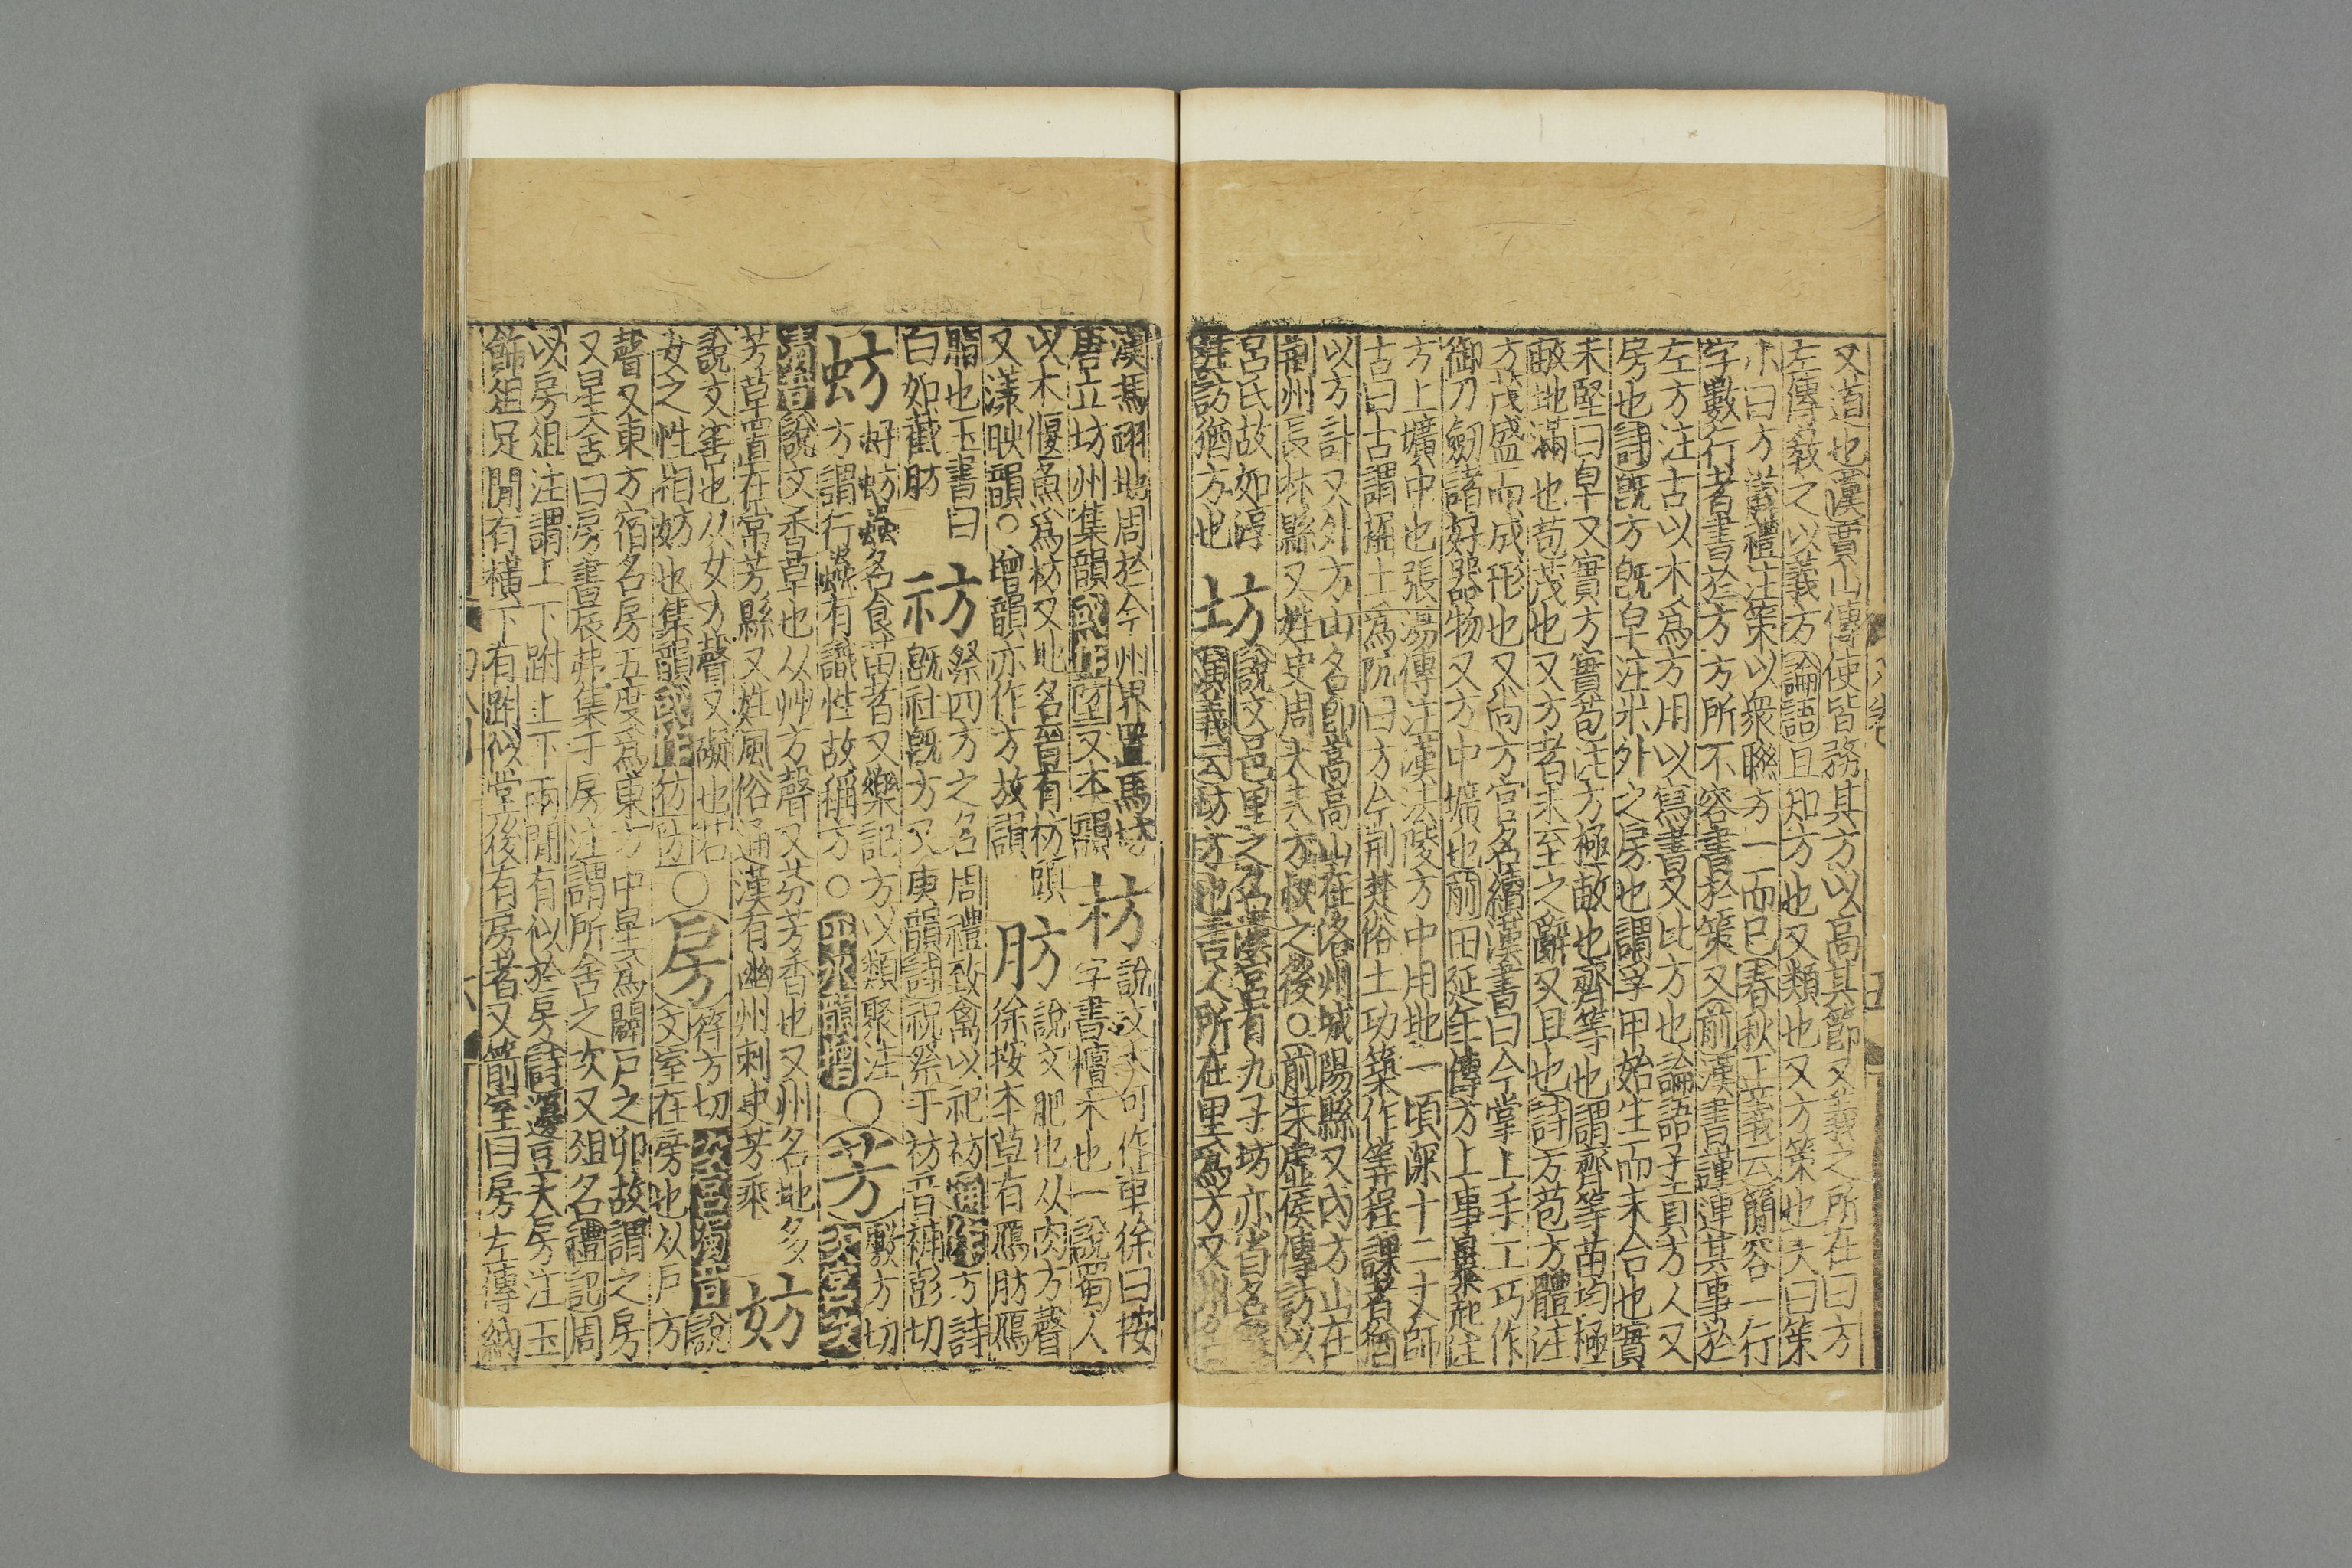 又道也漢賈山傳使皆務其方以高其節又義之所在曰方
左傳敎之以義方論語且知方也又類也又方策也大曰策
小曰方儀禮注策以衆聯方一而已春秋正義云簡容一行
字數行者書於方方所不容書於策又前漢書謹連其事於
左方注古以木爲方用以寫書又比方也論語子貢方人又
房也詩旣方旣皁注米外之房也謂孚甲始生而未合也實
未堅曰皁又實方實苞注方極畝也齊等也謂齊等苗均極
畝地滿也苞茂也又方者未至之辭又且也詩方苞方體注
方茂盛而成形也又尙方官名續漢書曰今掌上手工巧作
御刀劒諸好器物又方中壙也前田延年傳方上事暴起注
方上壙中也張湯傳注漢法陵方中用地一頃深十二丈師
古曰古謂掘土爲阬曰方今荆楚俗土功築作筭程課者猶
以方計又外方山名卽嵩高山在洛州城陽縣又內方山在
荆州長林縣又姓史周大夫方叔之後○前朱虛侯傳訪以
呂氏故如淳坊說文邑里之名漢宮有九子坊亦省名
註訪猶方也演義云坊方也言人所在里爲方又州名
漢馮翊地周於今州界置馬坊枋說文木可作車徐曰按
唐立坊州集韻或作堃又本韻字書檀木也一說蜀人
以木偃魚爲枋又地名晉有枋頭肪說文肥也从肉方聲
又漾映韻○增韻亦作方故韻徐按本草有鴈肪鴈
脂也玉書曰祊祭四方之名周禮致禽以祀祊通作方詩
白如截肪旣社旣方又庚韻詩祝祭于祊音補彭切
蚄虸蚄蟲名食苗者又樂記方以類聚注○芳敷方切
方謂行蟲有識性故稱方○平水韻增次宮次
濁音說文香草也从艸方聲又芬芳香也又州名地多
芳草置在常芳縣又姓風俗通漢有幽州刺史芳乘妨
說文害也从女方聲又礙也若符方切次宮濁音說
女之性相妨也集韻或作○房文室在旁也从戶方
聲又東方宿名房五度爲東方中星爲闢戶之卯故謂之房
又星天舌曰房書辰弗集于房注謂所舍之次又俎名禮記周
以房俎注謂上下跗上下兩閒有似於房詩籩豆大房注玉
飾俎足閒有橫下有跗似堂後有房者又箭室曰房左傳納